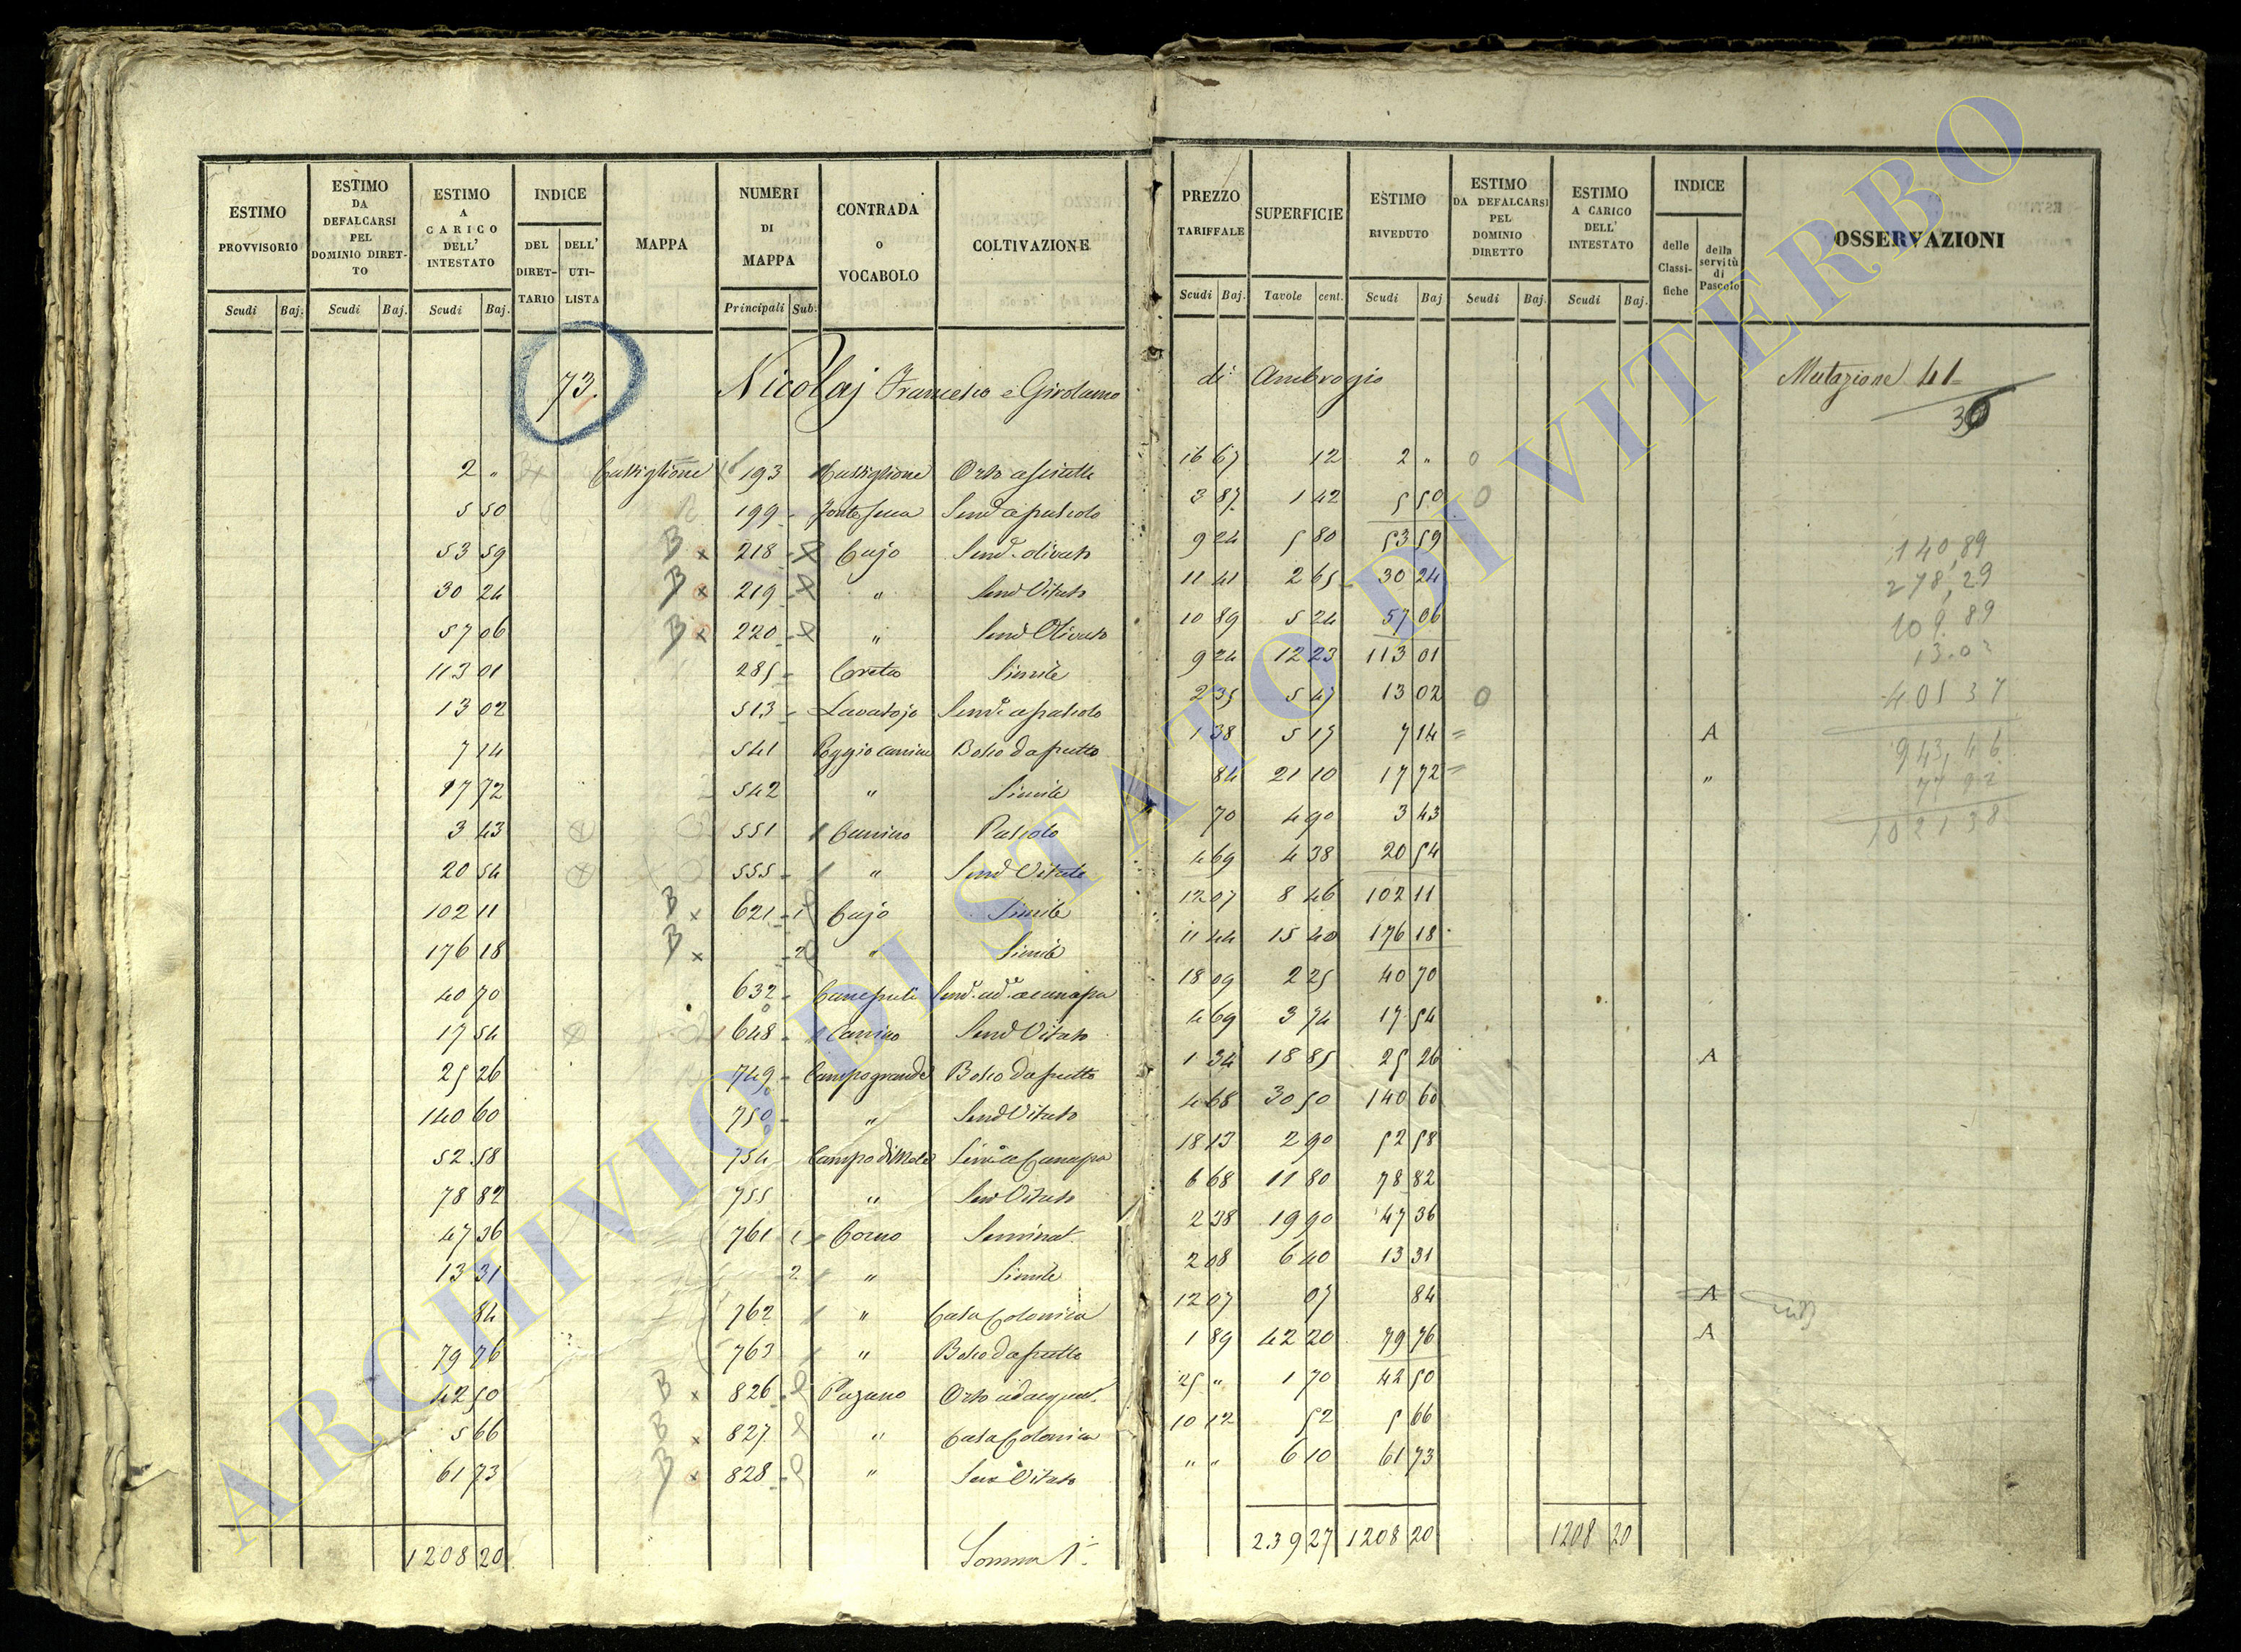 ESTIMO PROVVISORIO Scudi Baj.
ESTIMO DA DEFALCARSI PEL DOMINIO DIRET-TO Scudi Baj.
ESTIMO A CARICO DELL' INTESTATO Scudi Baj.
INDICE DEL DIRET-TARIO DELL' UTI-LISTA
MAPPA
NUMERI DI MAPPA Principali Sub.
CONTRADA o VOCABOLO
COLTIVAZIONE
PREZZO TARIFFALE Scudi Baj.
SUPERFICIE Tavole cent.
ESTIMO RIVEDUTO Scudi Baj
ESTIMO DA DEFALCARSI PEL DOMINIO DIRETTO Scudi Baj.
ESTIMO A CARICO DELL' INTESTATO Scudi Baj.
INDICE delle Classi-fiche della servitù di Pascolo
OSSERVAZIONI
73. Nicolaj Francesco e Girolamo di Ambrogio Mutazione 41
36
2 " Castiglione 193 Castiglione Orto asciutto 16 67 12 2 "
5 50 199 Sem.o a pascolo 3 87 1 42 5 50
53 59 B x 218 Cujo Sem.o olivato 9 24 5 80 53 59
30 24 B x 219 " Sem.o Vitato 11 41 2 65 30 24
57 06 B x 220 " Sem.o Olivato 10 89 5 24 57 06
113 01 285 Creta Simile 9 24 12 23 113 01
13 02 513 Lavatojo Sem.o a pascolo 2 35 5 47 13 02
7 14 541 Poggio Bosco da frutto 1 38 5 17 7 14 A
17 72 542 " Simile 84 21 10 17 72 "
3 43 551 Canino Pascolo 70 4 90 3 43
20 54 555 " Sem.o Vitato 4 69 4 38 20 54
102 11 B x 621 1 Cujo Simile 12 07 8 46 102 11
176 18 B x 2 " Simile 11 44 15 40 176 18
40 70 632 18 09 2 25 40 70
17 54 648 Canino Sem.o Vitato 4 69 3 74 17 54
25 26 749 Campogrande Bosco da frutto 1 34 18 85 25 26 A
140 60 750 " Sem.o Vitato 4 68 30 50 140 60
52 58 754 Campo di Mola 18 13 2 90 52 58
78 82 755 " Sem.o Vitato 6 68 11 80 78 82
47 36 761 1 Corno Seminat. 2 38 19 90 47 36
13 31 2 " Simile 2 08 6 40 13 31
84 762 " Casa Colonica 12 07 07 84 A
79 76 763 " Bosco da frutto 1 89 42 20 79 76 A
42 50 B x 826 Pazano Orto adacquat. 25 " 1 70 42 50
5 66 B x 827 " Casa Colonica 10 12 52 5 66
61 73 B x 828 " Sem.o Vitato " " 6 10 61 73
1208 20 Somma 1.a 239 27 1208 20 1208 20
140 89
278,29
109 89
13.02
401 37
943,46
77 92
1021 38
ARCHIVIO DI STATO DI VITERBO